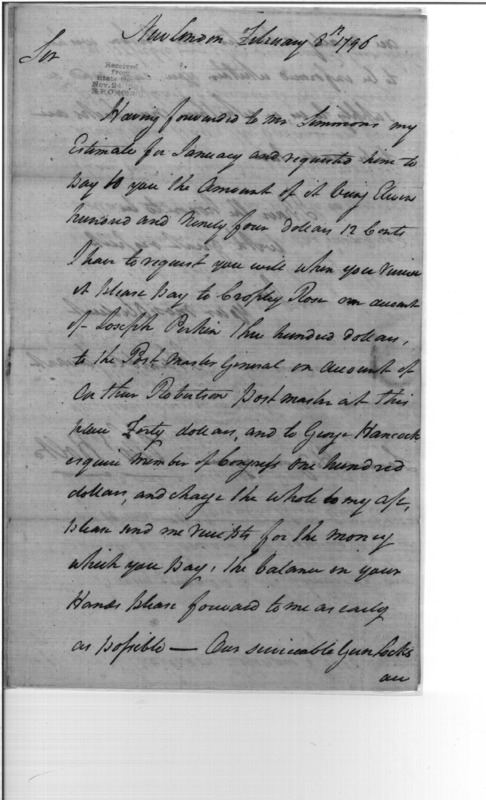 New London February 8th 1796
Sir
Received
from
State
Nov. 24
Having forwarded to Mr Simmons my
Estimate for January and requested him to
pay to you the Amount of it being Eleven
hundred and Ninety four dollars 12 Cents
I have to request you will when you receive
it please pay to Cropley Rose on account
of Joseph Perkin three hundred dollars,
to the Post Master General on account of
Arthur Robertson post master at this
place Forty dollars, and to George Hancock
esquire Member of Congress one hundred
dollars, and charge the whole to my a/c,
please send me receipts for the money
which you pay, the balance in your
Hands please forward to me as early
as possible — Our serviceable Gun locks
are